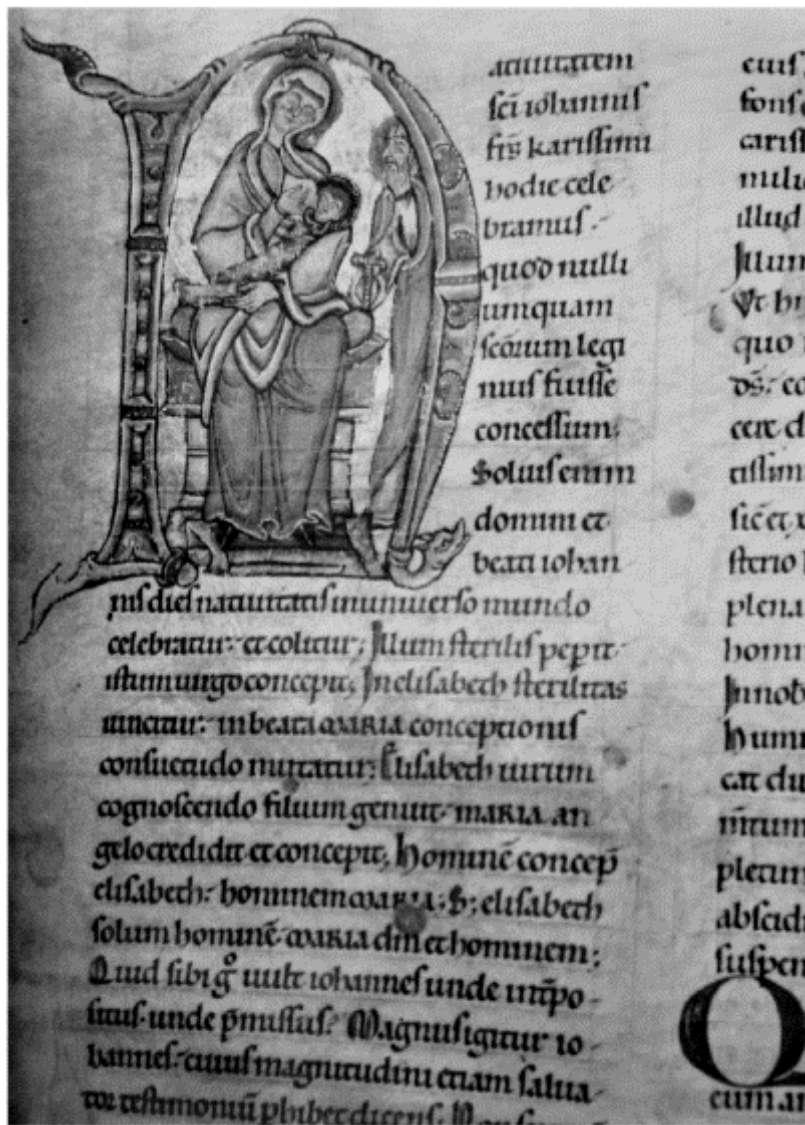 N
atiuitatem
sc̄i iohannis
fr̄s karissimi
hodie cele-
bramus.
quod nulli
umquam
sc̄orum legi
mus fuisse
concessum;
Solius enim
domini et
beati iohan
nis dies natiuitatis in uniuerso mundo
celebratur. et colitur; Illum sterilis peperit.
istum uirgo concepit; In elisabeth sterilitas
uincitur. in beata MARIA conceptionis
consuetudo mutatur; Elisabeth uirum
cognoscendo filium genuit. MARIA an
gelo credidit et concepit; Hominē concep̄
elisabeth. hominem MARIA; S; elisabeth
solum hominē. MARIA dm̄ et hominem;
Quid sibi gͦ uult iohannes unde int̄po-
situs. unde p̄missus? Magnus igitur io-
hannes. cuius magnitudini etiam salua-
tor testimoniū phibet dicens. Non
eius
fons
cariss
milit
illud
Illum
Vt
quo
ds̄.
cere
tissim
sic̄ et
sterio
plena
homi
Innob
Humi
cat
pletum
abscid
suspen
Q
cum